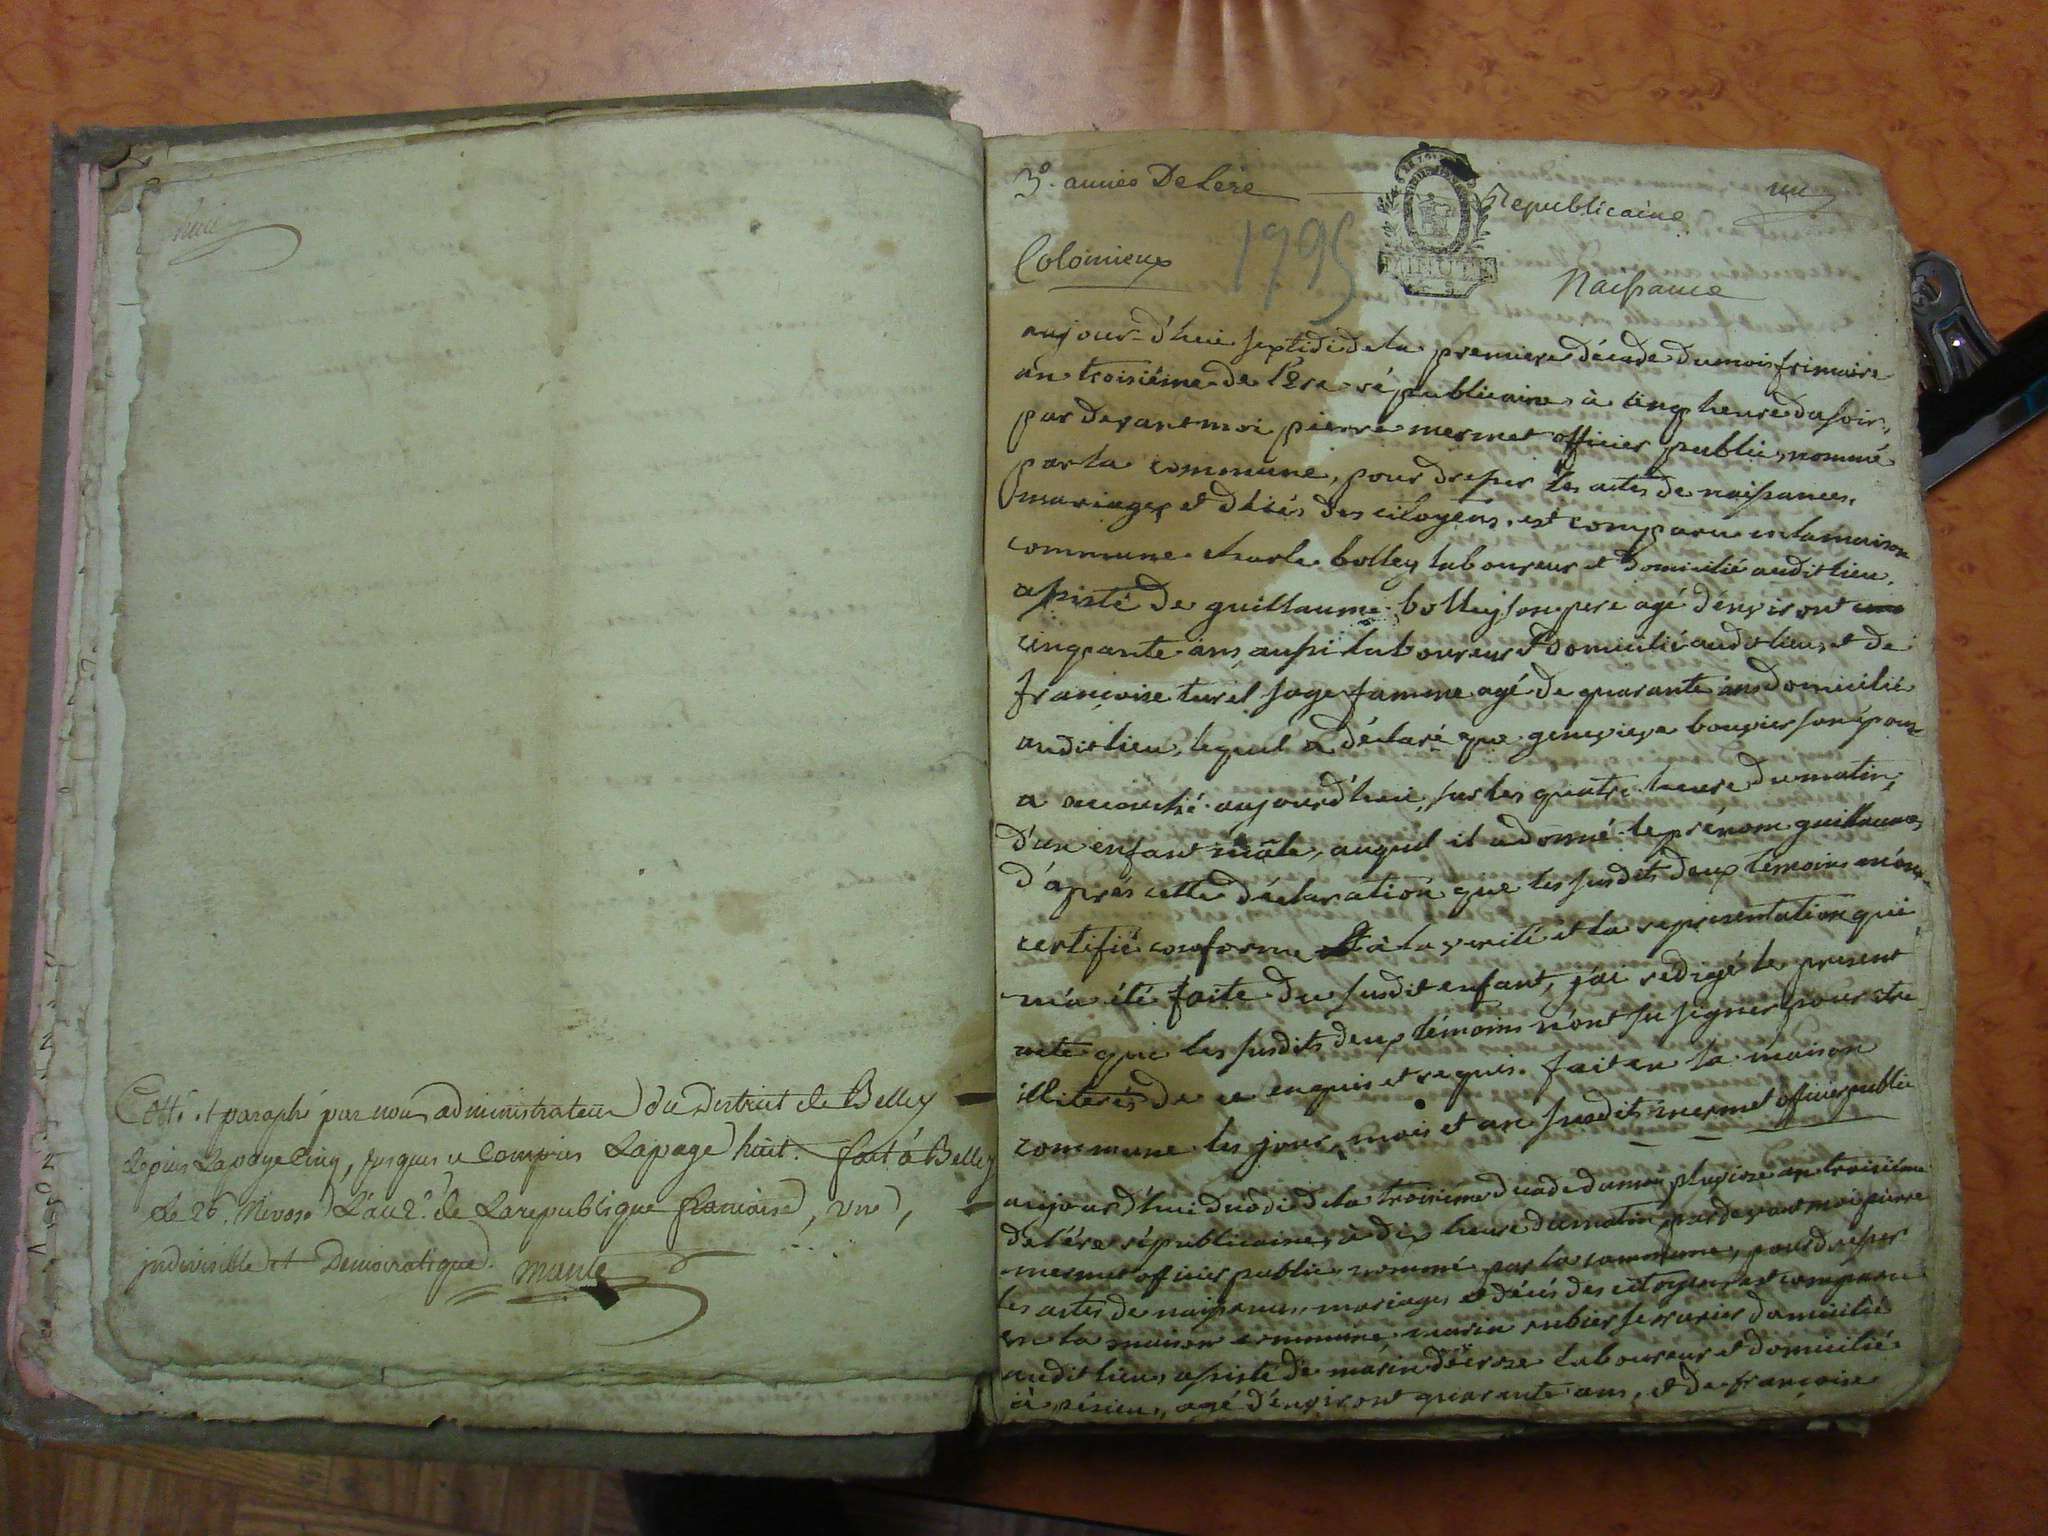 huit
Cotté et paraphé par nous administrateur du District de Belley
depuis la page Cinq, jusques et Compris la page huit. fait à Belley
le 26. Nivose L'an 2e. de La republique francaise, une,
indivisible et Democratique.
3e. année De l'ere Republicaine
un
MINUTE
Colomieux
1795
Naissance
aujour-d'hui septidi de la premiere décade du mois frimaire
an troisiéme de l'ère républicaine à cinq heure du soir,
par devant moi pierre mermet officier public, nommé
par la commune, pour dresser les actes de naissances,
mariages et décés des citoyens, est comparu en la maison
commune charle bolley laboureur et domicilié audit lieu,
assisté de guillaume bolley son pere agé d'environt
cinquante ans aussi laboureur et domicilié audit lieu, et de
françoise turel sage famme agé de quarante ans domicilié
audit lieu, lequel a déclaré que genevieve bouvier son épouse
a accouché aujourd'hui, sur les quatre heure du matin,
d'un enfant mâle, auquel il a donné le prénom guillaume,
d'aprés cette déclaration que les susdits deux témoins m'ont
certifié conforme à la verité et la representation qui
m'a été faite du susdit enfant, j'ai redigé le present
acte que les susdits deux témoins n'ont su signer pour etre
illiterés de ce enquis et requis. fait en la maison
commune les jour, mois et an susdits mermet officier public
aujourd'hui duodi de la troisiéme décade du mois pluviose an troisiéme
de l'ére républicaine, à dix heure du matin, par devant moi pierre
mermet officier public nommé par la commune, pour dresser
les actes de naissances, mariages et décés des citoyens est comparu
en la maison commune marin rubier serrurier domicilié
audit lieu, assisté de marin décroze laboureur et domicilié
à , agé d'environt quarante ans, et de françoise